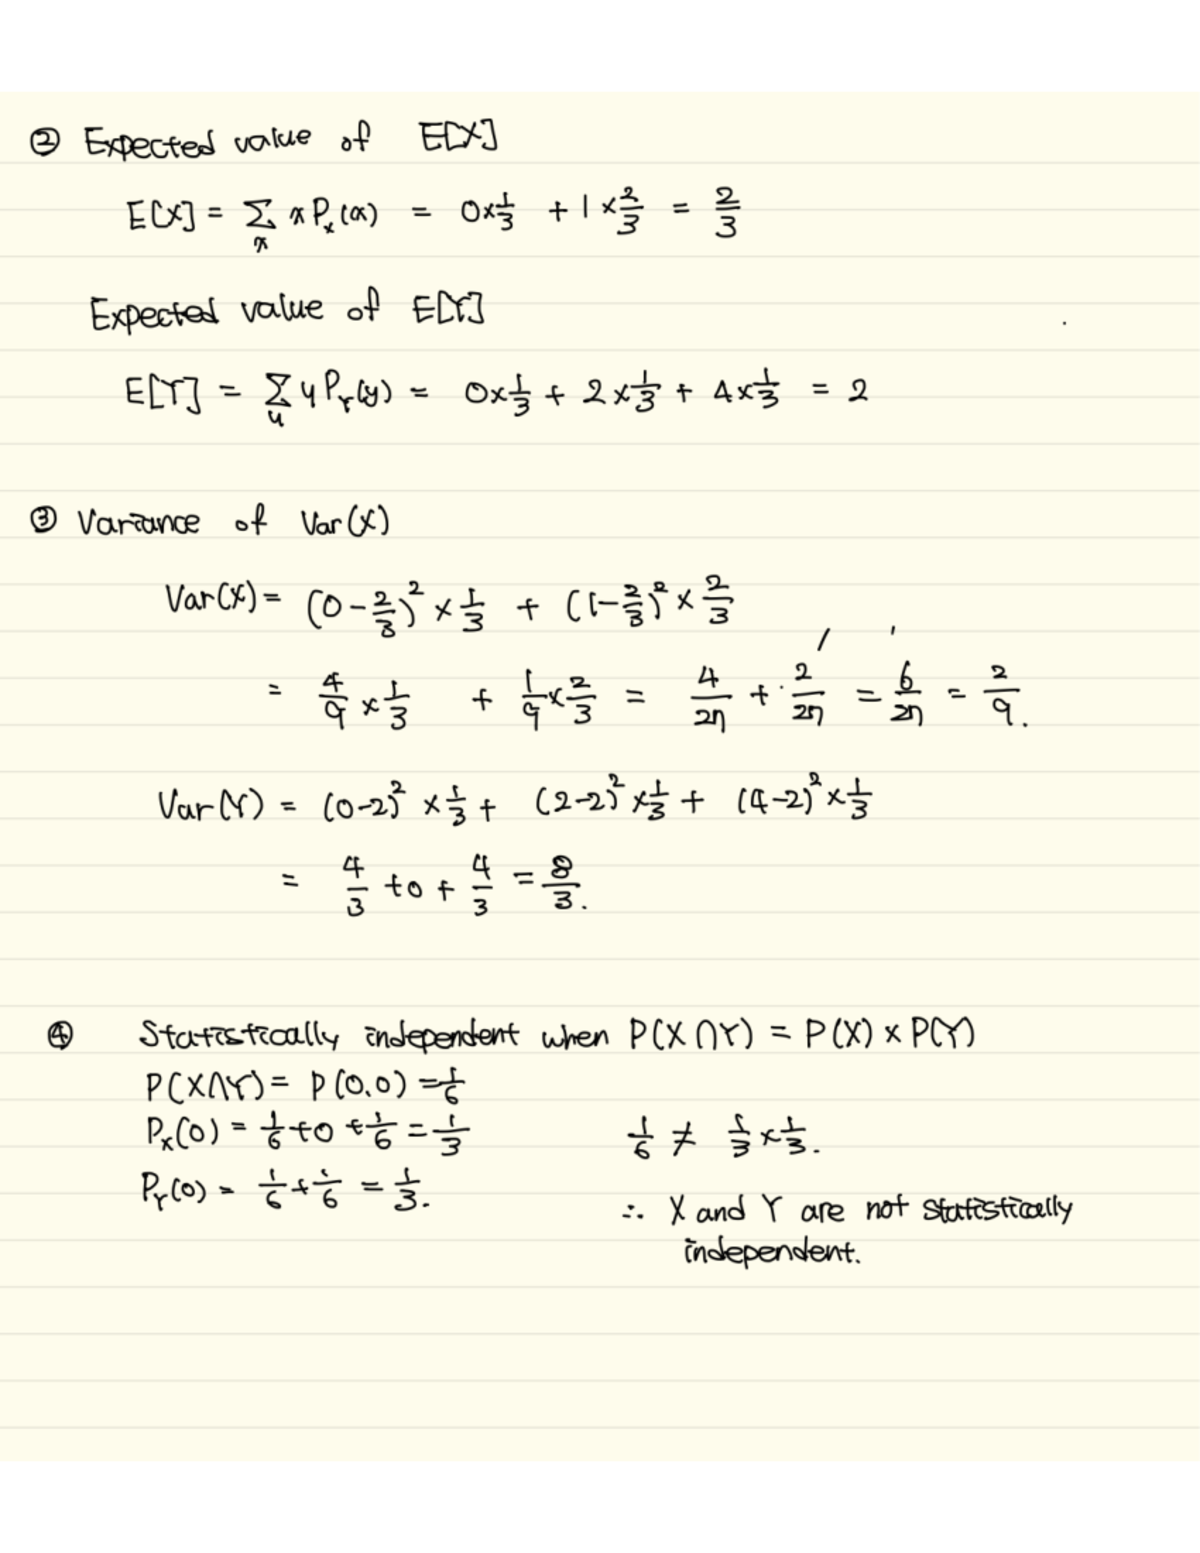 ② Expected value of E[X]
E[X] = Σₓ x Pₓ(x) = 0×1/3 + 1×2/3 = 2/3
Expected value of E[Y]
E[Y] = Σ_y y P_Y(y) = 0×1/3 + 2×1/3 + 4×1/3 = 2
③ Variance of Var(X)
Var(X) = (0-2/3)² × 1/3 + (1-2/3)² × 2/3
= 4/9 × 1/3 + 1/9 × 2/3 = 4/27 + 2/27 = 6/27 = 2/9.
Var(Y) = (0-2)² × 1/3 + (2-2)² × 1/3 + (4-2)² × 1/3
= 4/3 + 0 + 4/3 = 8/3.
④ Statistically independent when P(X∩Y) = P(X) × P(Y)
P(X∩Y) = P(0.0) = 1/6
Pₓ(0) = 1/6 + 0 + 1/6 = 1/3
P_Y(0) = 1/6 + 1/6 = 1/3.
1/6 ≠ 1/3 × 1/3.
∴ X and Y are not statistically
independent.